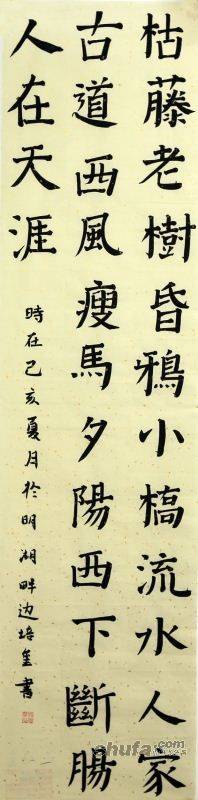 枯藤老樹昏鴉小橋流水人家
古道西風瘦馬夕陽西下斷腸
人在天涯
時在己亥夏月於明湖畔边培書